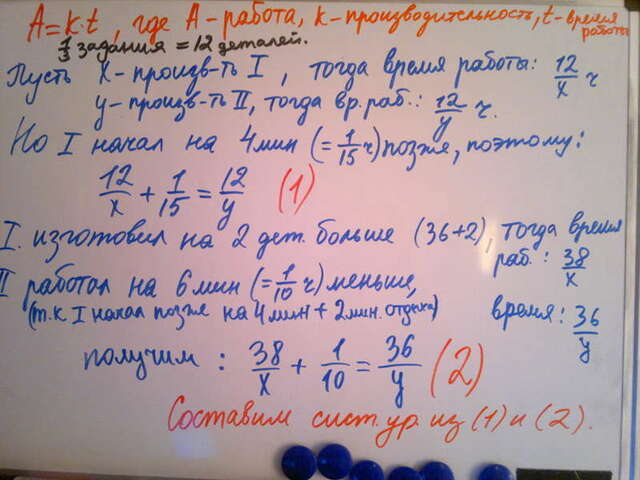 A=k·t, где A-работа, k-производительность, t-время работы
1/3 задания = 12 деталей.
Пусть x-произв-ть I, тогда время работы: 12/x ч
y-произв-ть II, тогда вр. раб.: 12/y ч.
Но I начал на 4 мин (=1/15 ч) позже, поэтому:
12/x + 1/15 = 12/y (1)
I. изготовил на 2 дет. больше (36+2), тогда время
раб.: 38/x
II работал на 6 мин (=1/10 ч) меньше,
(т.к I начал позже на 4 мин + 2 мин. отдыха) время: 36/y
получим: 38/x + 1/10 = 36/y (2)
Составим сист. ур. из (1) и (2).